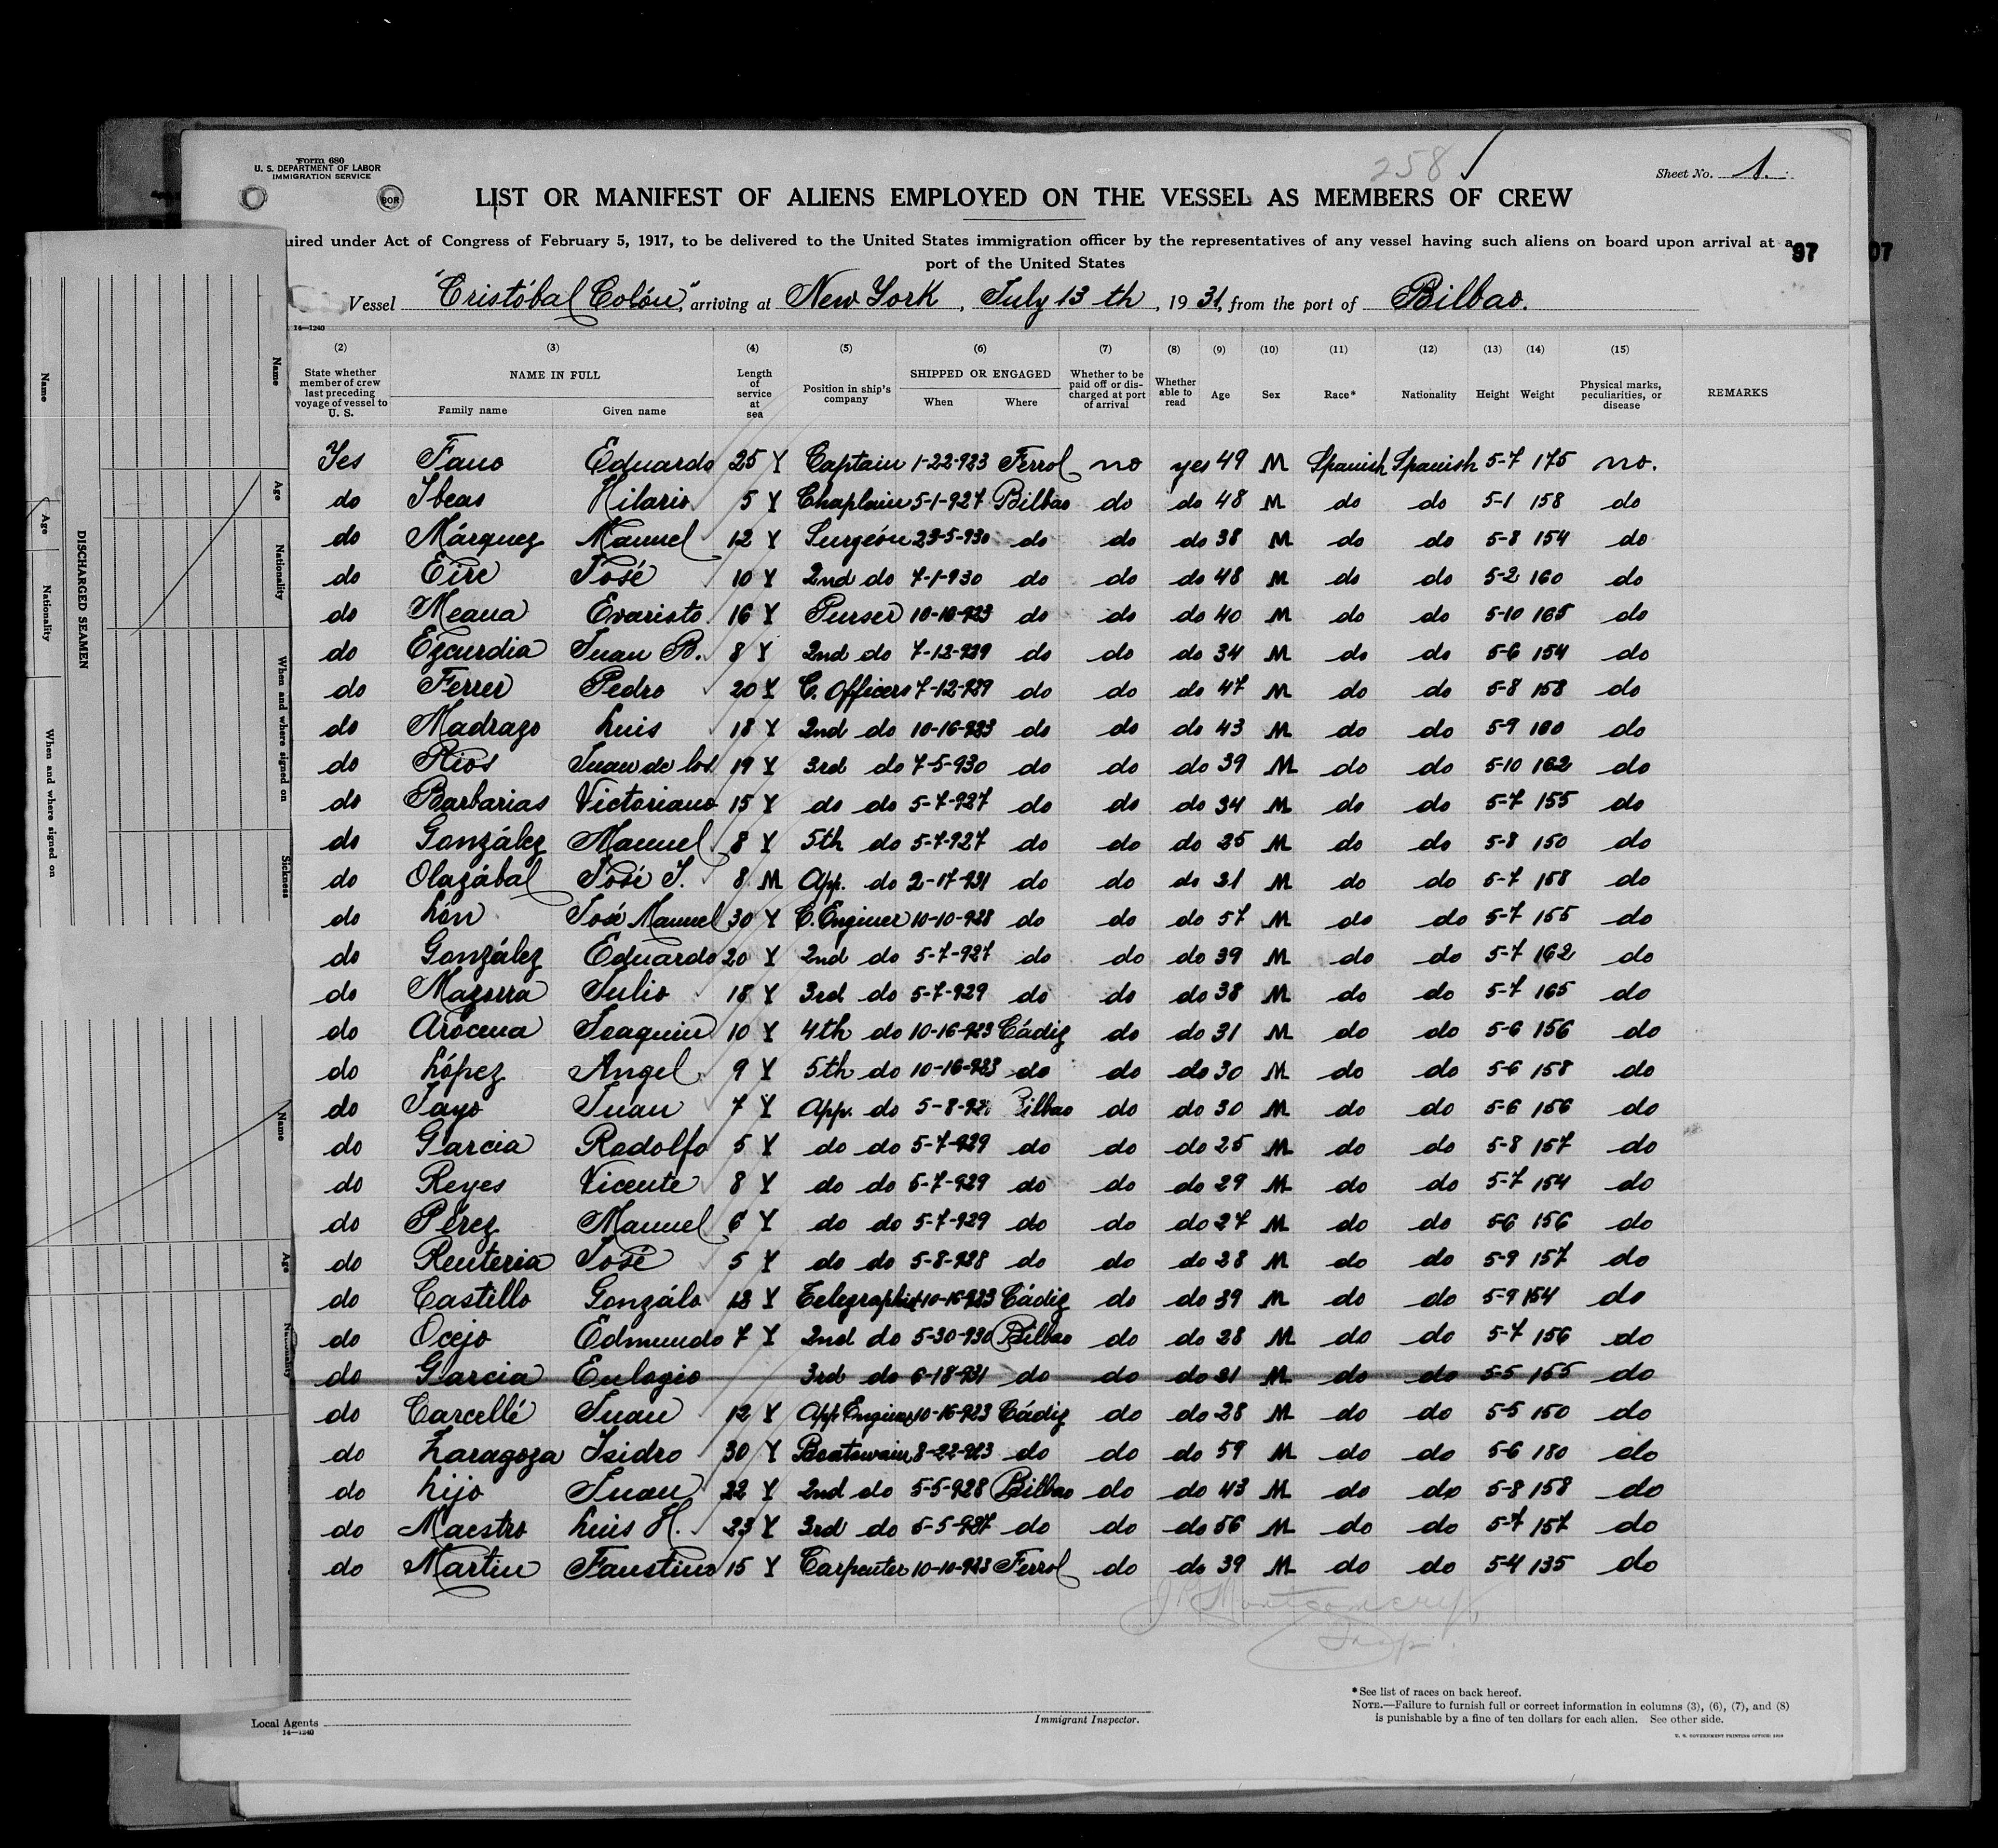 Form 680
U. S. DEPARTMENT OF LABOR
IMMIGRATION SERVICE
BOR
258
Sheet No. 1.
LIST OR MANIFEST OF ALIENS EMPLOYED ON THE VESSEL AS MEMBERS OF CREW
uired under Act of Congress of February 5, 1917, to be delivered to the United States immigration officer by the representatives of any vessel having such aliens on board upon arrival at a
port of the United States
97 07
Vessel "Cristóbal Colón", arriving at New York, July 13 th, 1931, from the port of Bilbao.
14—1240
(2) (3) (4) (5) (6) (7) (8) (9) (10) (11) (12) (13) (14) (15)
State whether member of crew last preceding voyage of vessel to U. S. NAME IN FULL Family name Given name Length of service at sea Position in ship's company SHIPPED OR ENGAGED When Where Whether to be paid off or discharged at port of arrival Whether able to read Age Sex Race* Nationality Height Weight Physical marks, peculiarities, or disease REMARKS
Yes Fano Eduardo 25 Y Captain 1-22-923 Ferrol no yes 49 M Spanish Spanish 5-7 175 no.
do Ibeas Hilario 5 Y Chaplain 5-1-927 Bilbao do do 48 M do do 5-1 158 do
do Márquez Manuel 12 Y Surgeón 23-5-930 do do do 38 M do do 5-8 154 do
do Eire José 10 Y 2nd do 7-1-930 do do do 48 M do do 5-2 160 do
do Meana Evaristo 16 Y Purser 10-16-923 do do do 40 M do do 5-10 165 do
do Ezcurdia Juan B. 8 Y 2nd do 7-12-929 do do do 34 M do do 5-6 154 do
do Ferrer Pedro 20 Y C. Officers 7-12-929 do do do 47 M do do 5-8 158 do
do Madrazo Luis 18 Y 2nd do 10-16-923 do do do 43 M do do 5-9 180 do
do Rios Juan de los 19 Y 3rd do 7-5-930 do do do 39 M do do 5-10 162 do
do Barbarias Victoriano 15 Y do do 5-7-927 do do do 34 M do do 5-7 155 do
do González Manuel 8 Y 5th do 5-7-927 do do do 25 M do do 5-8 150 do
do Olazábal José I. 8 M App. do 2-17-931 do do do 21 M do do 5-7 158 do
do Lón José Manuel 30 Y C. Enginer 10-10-928 do do do 57 M do do 5-7 155 do
do González Eduardo 20 Y 2nd do 5-7-927 do do do 39 M do do 5-7 162 do
do Mazorra Julio 18 Y 3rd do 5-7-929 do do do 38 M do do 5-7 165 do
do Arocena Joaquin 10 Y 4th do 10-16-923 Cádiz do do 31 M do do 5-6 156 do
do López Angel 9 Y 5th do 10-16-923 do do do 30 M do do 5-6 158 do
do Tayo Juan 7 Y App. do 5-8-92 Bilbao do do 30 M do do 5-6 156 do
do Garcia Rodolfo 5 Y do do 5-7-929 do do do 25 M do do 5-8 157 do
do Reyes Vicente 8 Y do do 5-7-929 do do do 29 M do do 5-7 154 do
do Pérez Manuel 6 Y do do 5-7-929 do do do 27 M do do 5-6 156 do
do Renteria José 5 Y do do 5-8-928 do do do 28 M do do 5-9 157 do
do Castillo Gonzálo 18 Y Telegraphist 10-16-923 Cádiz do do 39 M do do 5-9 154 do
do Ocejo Edmundo 7 Y 2nd do 5-30-930 Bilbao do do 28 M do do 5-7 156 do
do Garcia Eulogio 3rd do 6-18-931 do do do 21 M do do 5-5 155 do
do Carcellé Juan 12 Y App Enginer 10-16-923 Cádiz do do 28 M do do 5-5 150 do
do Zaragoza Isidro 30 Y Boatswain 8-22-923 do do do 59 M do do 5-6 180 do
do Lijo Juan 22 Y 2nd do 5-5-928 Bilbao do do 43 M do do 5-8 158 do
do Maestro Luis H. 23 Y 3rd do 5-5-927 do do do 56 M do do 5-7 157 do
do Martin Faustino 15 Y Carpenter 10-10-923 Ferrol do do 39 M do do 5-4 135 do
Montgomery
Insp.
*See list of races on back hereof.
NOTE.—Failure to furnish full or correct information in columns (3), (6), (7), and (8)
is punishable by a fine of ten dollars for each alien. See other side.
Local Agents
14—1240
Immigrant Inspector.
U. S. GOVERNMENT PRINTING OFFICE
DISCHARGED SEAMEN
Name
Age
Nationality
When and where signed on
Name
Age
Nationality
When and where signed on
Sickness
Name
Age
Nationality